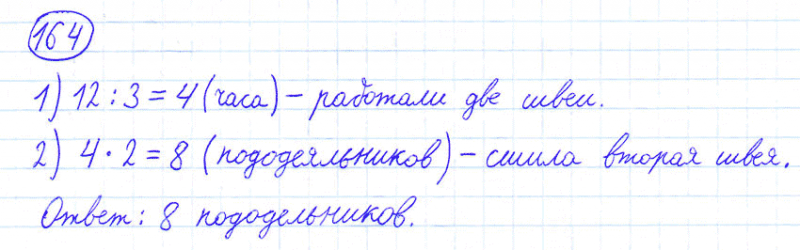 164
1) 12 : 3 = 4 (часа) – работали две швеи.
2) 4 · 2 = 8 (пододеяльников) – сшила вторая швея.
Ответ: 8 пододельников.